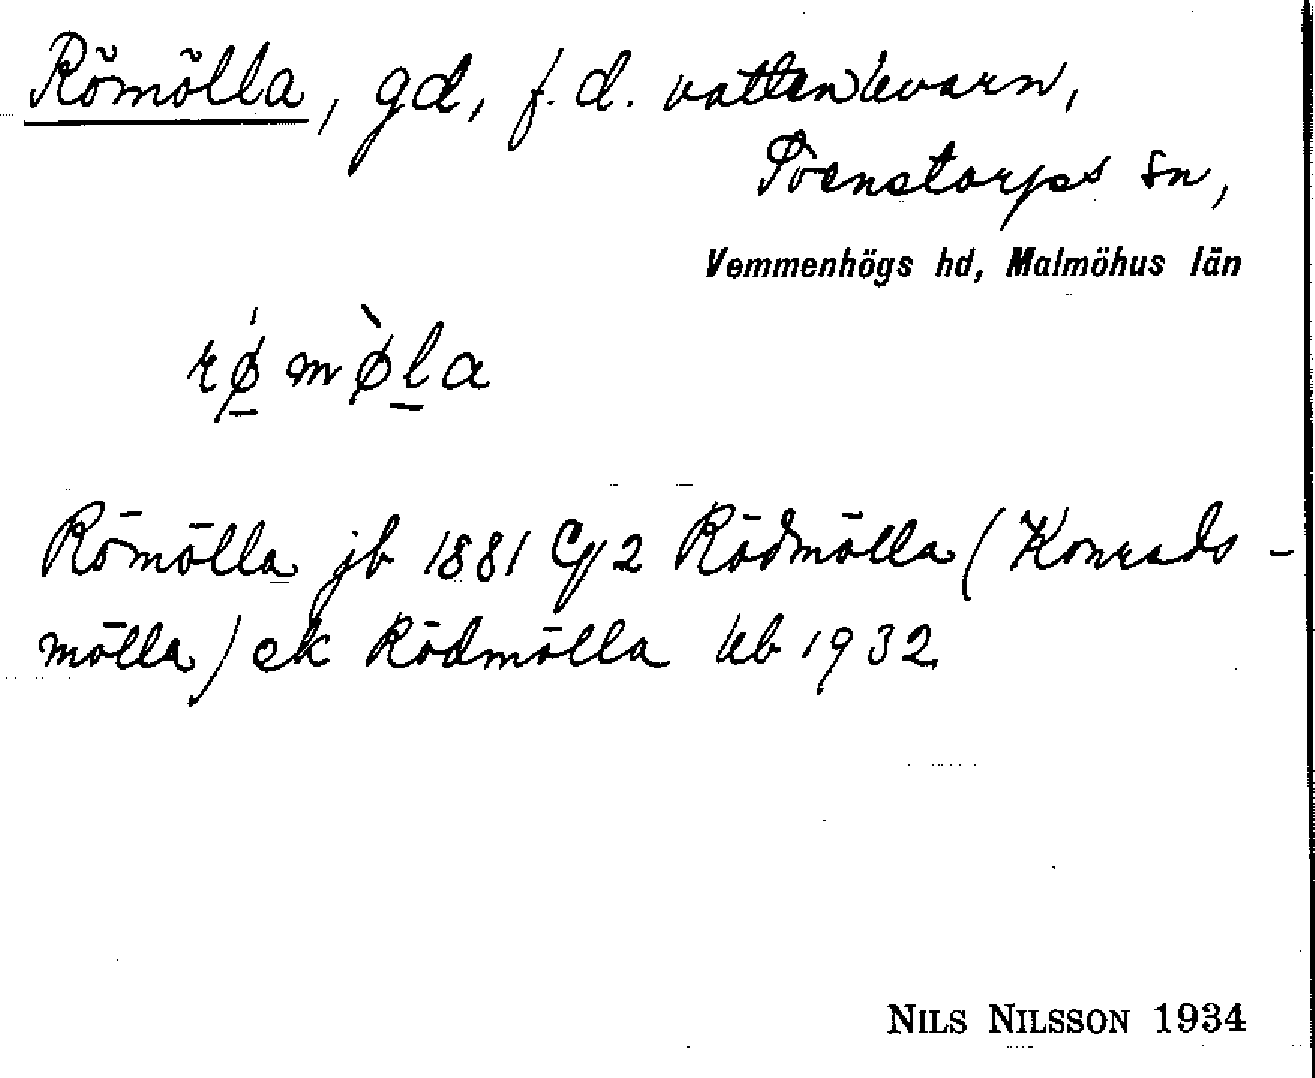 Römölla, gd, f.d. vattenkvarn,
Svenstorps sn,
Vemmenhögs hd, Malmöhus län
rǿ mø̀la
Römölla jb 1881 C/2 Rödmölla (Konrads-
mölla) ek Rödmölla kb 1932
NILS NILSSON 1934